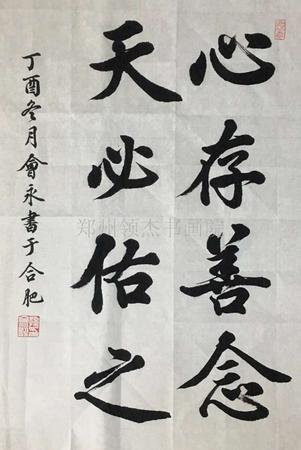 心存善念
天必佑之
丁酉冬月會永書于合肥
郑州领杰书画院